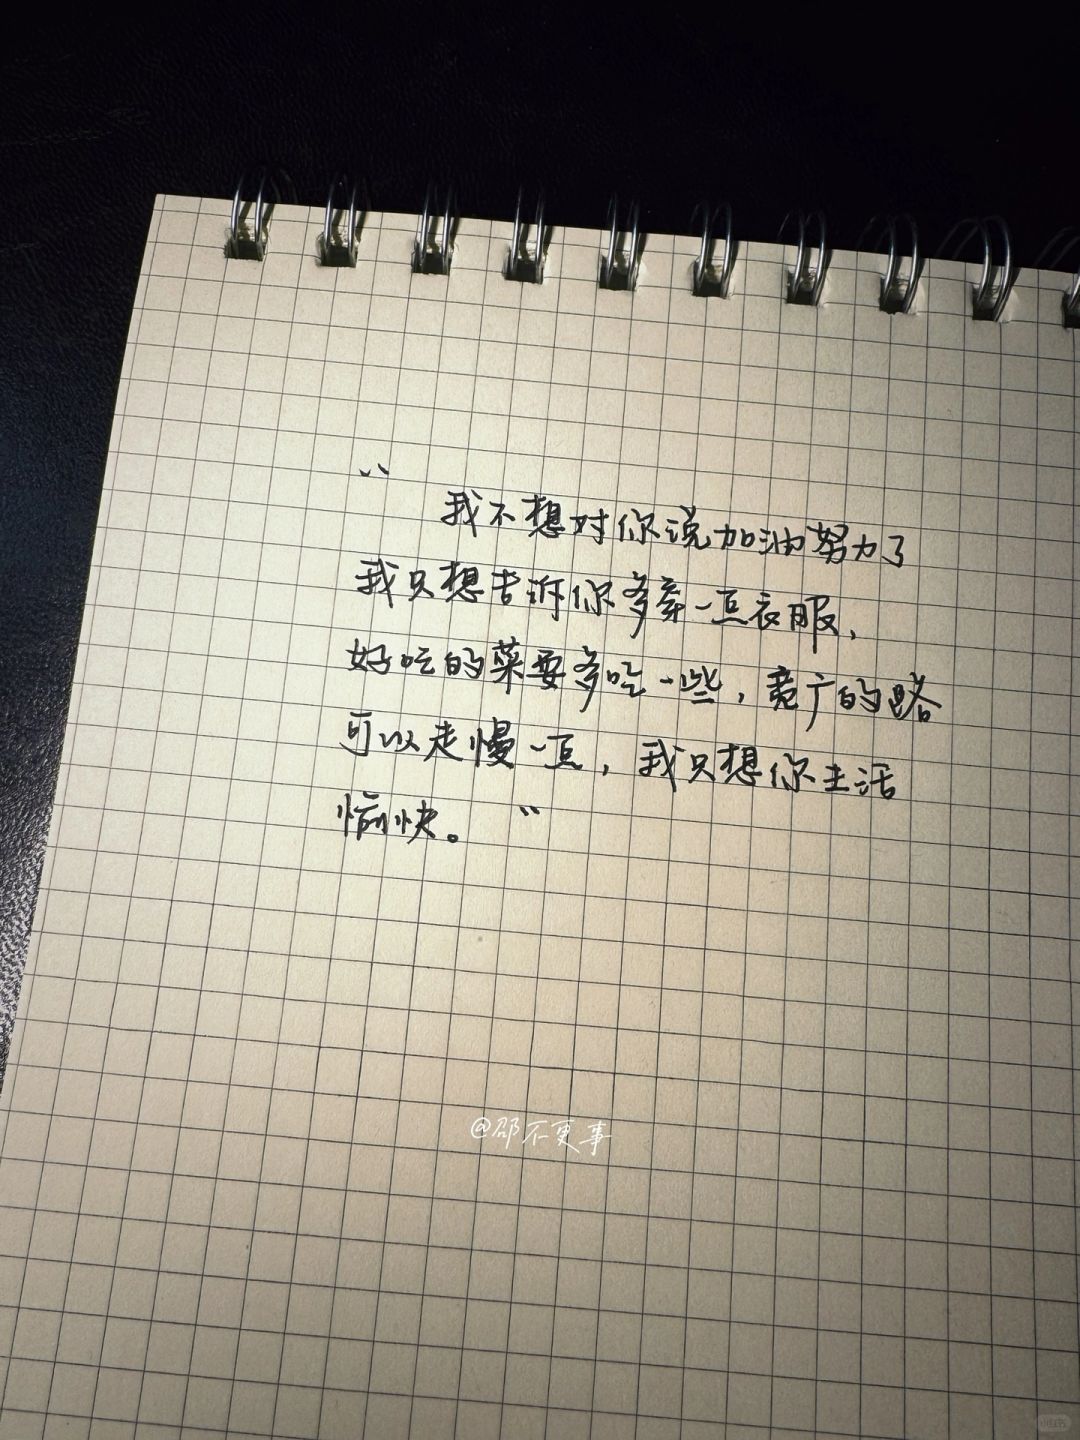 “
我不想对你说加油努力了
我只想告诉你多穿一点衣服，
好吃的菜要多吃一些，宽广的路
可以走慢一点，我只想你生活
愉快。 ”
@邵不更事
小红书